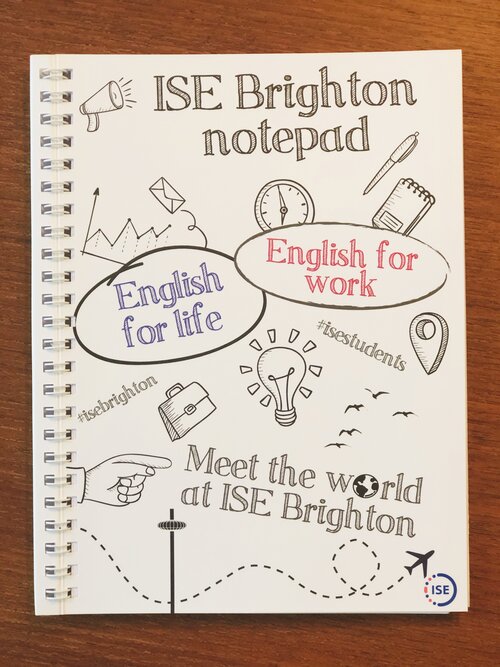 ISE Brighton
notepad
English for
work
English
for life
#isestudents
#isebrighton
Meet the world
at ISE Brighton
ISE